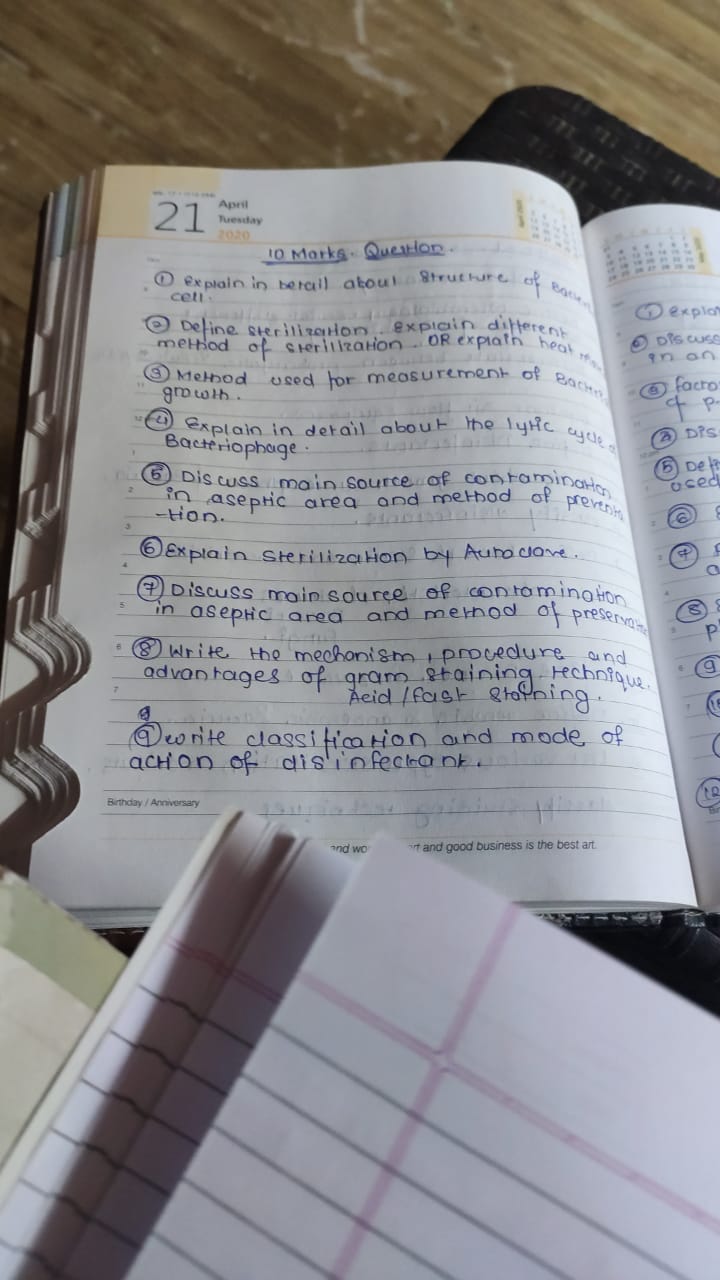 21
April
Tuesday
2020
10 Marks. Question.
① Explain in detail about Structure of
cell.
② Define sterilization. explain different
method of sterilization. OR explain heat
③ Method used for measurement of
growth.
④ Explain in detail about the lytic cycle
Bacteriophage.
⑤ Discuss main source of contamination
in aseptic area and method of preventa
-tion.
⑥ Explain sterilization by Autoclave.
⑦ Discuss main source of contamination
in aseptic area and method of
⑧ Write the mechanism, procedure and
advantages of gram staining technique.
Acid / fast staining.
⑨ write classification and mode of
action of disinfectant.
Birthday / Anniversary
and good business is the best art.
① explai
② Discuss
in an
③ facto
of p
④ Dis
⑤ Defi
used
⑥
⑦
⑧
⑨
⑫